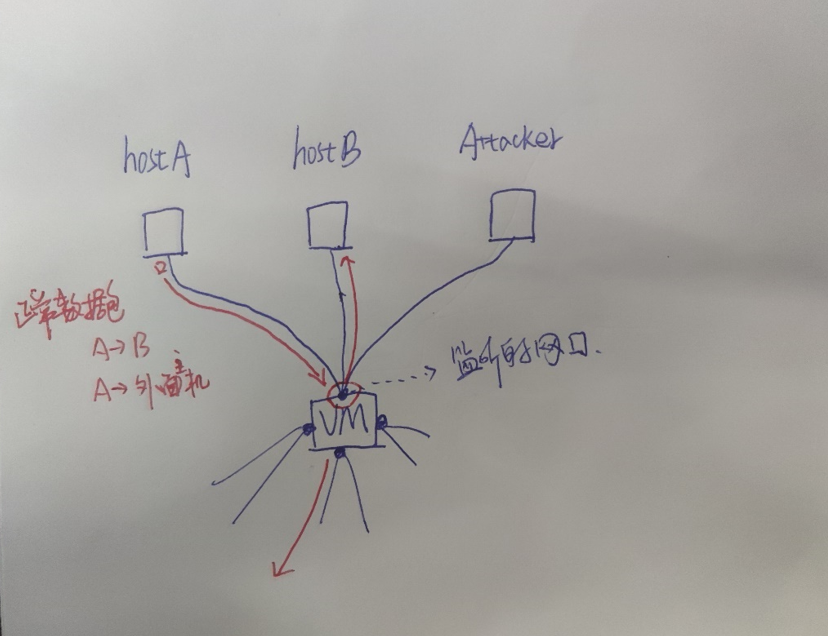 hostA
hostB
Attacker
正常数据包
A→B
A→外面主机
监听的网口.
VM